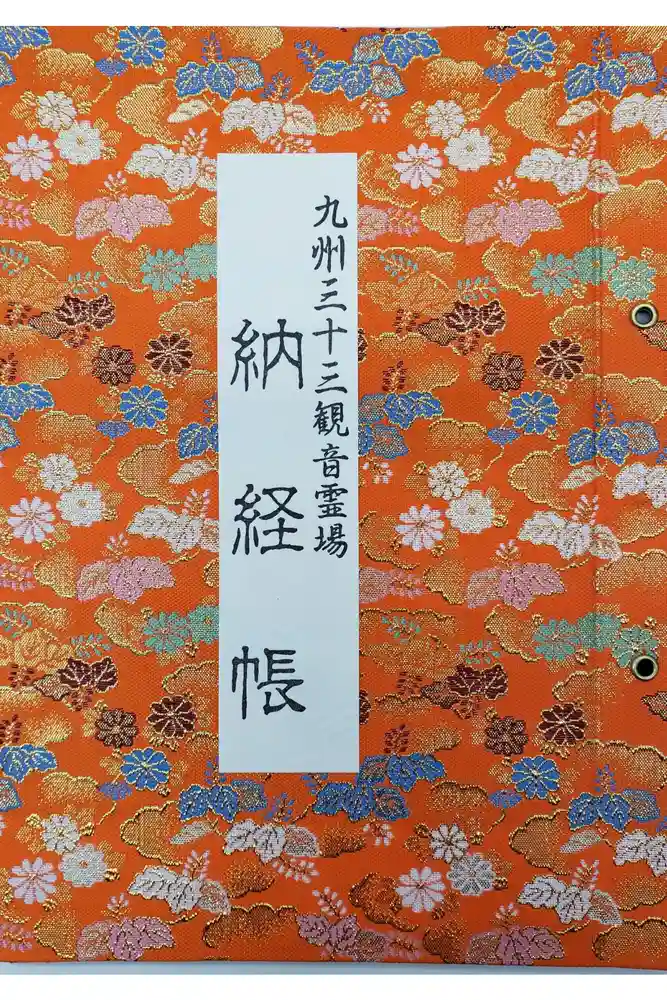 九州三十三観音霊場
納経帳